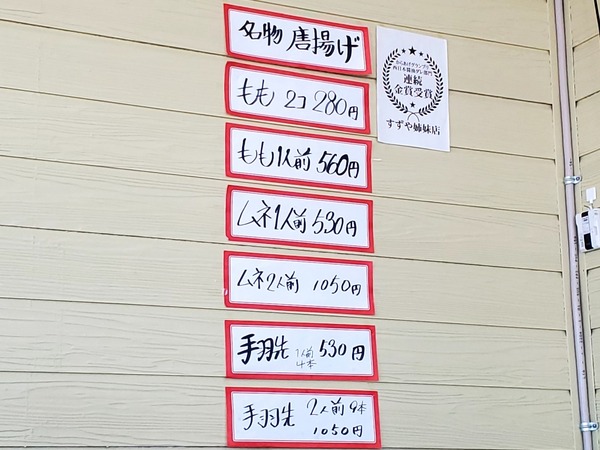 名物 唐揚げ
もも 2コ 280円
もも1人前 560円
ムネ1人前 530円
ムネ2人前 1050円
手羽先 1人前 4本 530円
手羽先 2人前 9本
1050円
からあげグランプリ
西日本醤油ダレ部門
連続
金賞受賞
すずや姉妹店